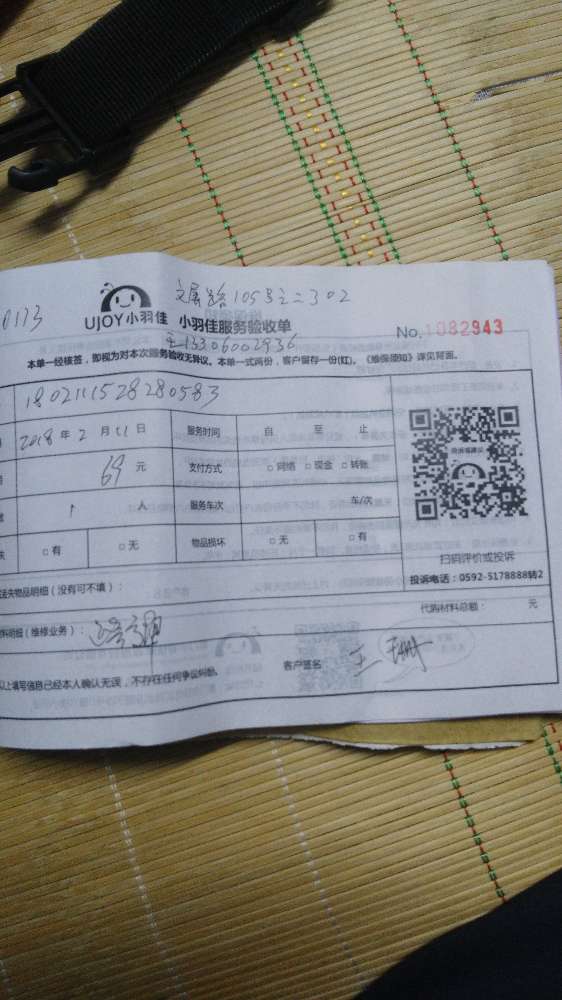 文屏路105号之二302
0113
UJOY小羽佳 小羽佳服务验收单
No.1082943
王13306002936
本单一经核签，即视为对本次服务验收无异议。本单一式两份，客户留存一份(红)。《维保须知》详见背面。
180211528280583
2018年2月11日 服务时间 自 至 止
69元 支付方式 □网络 □现金 □转账
1 人 服务车次 车/次
□有 □无 物品损坏 □无 □有
扫码评价或投诉
投诉电话：0592-5178888转2
失物品明细（没有可不填）：
料明细（维修业务）： 代购材料总额： 元
以上填写信息已经本人确认无误，不存在任何争议纠纷。 客户签名 王